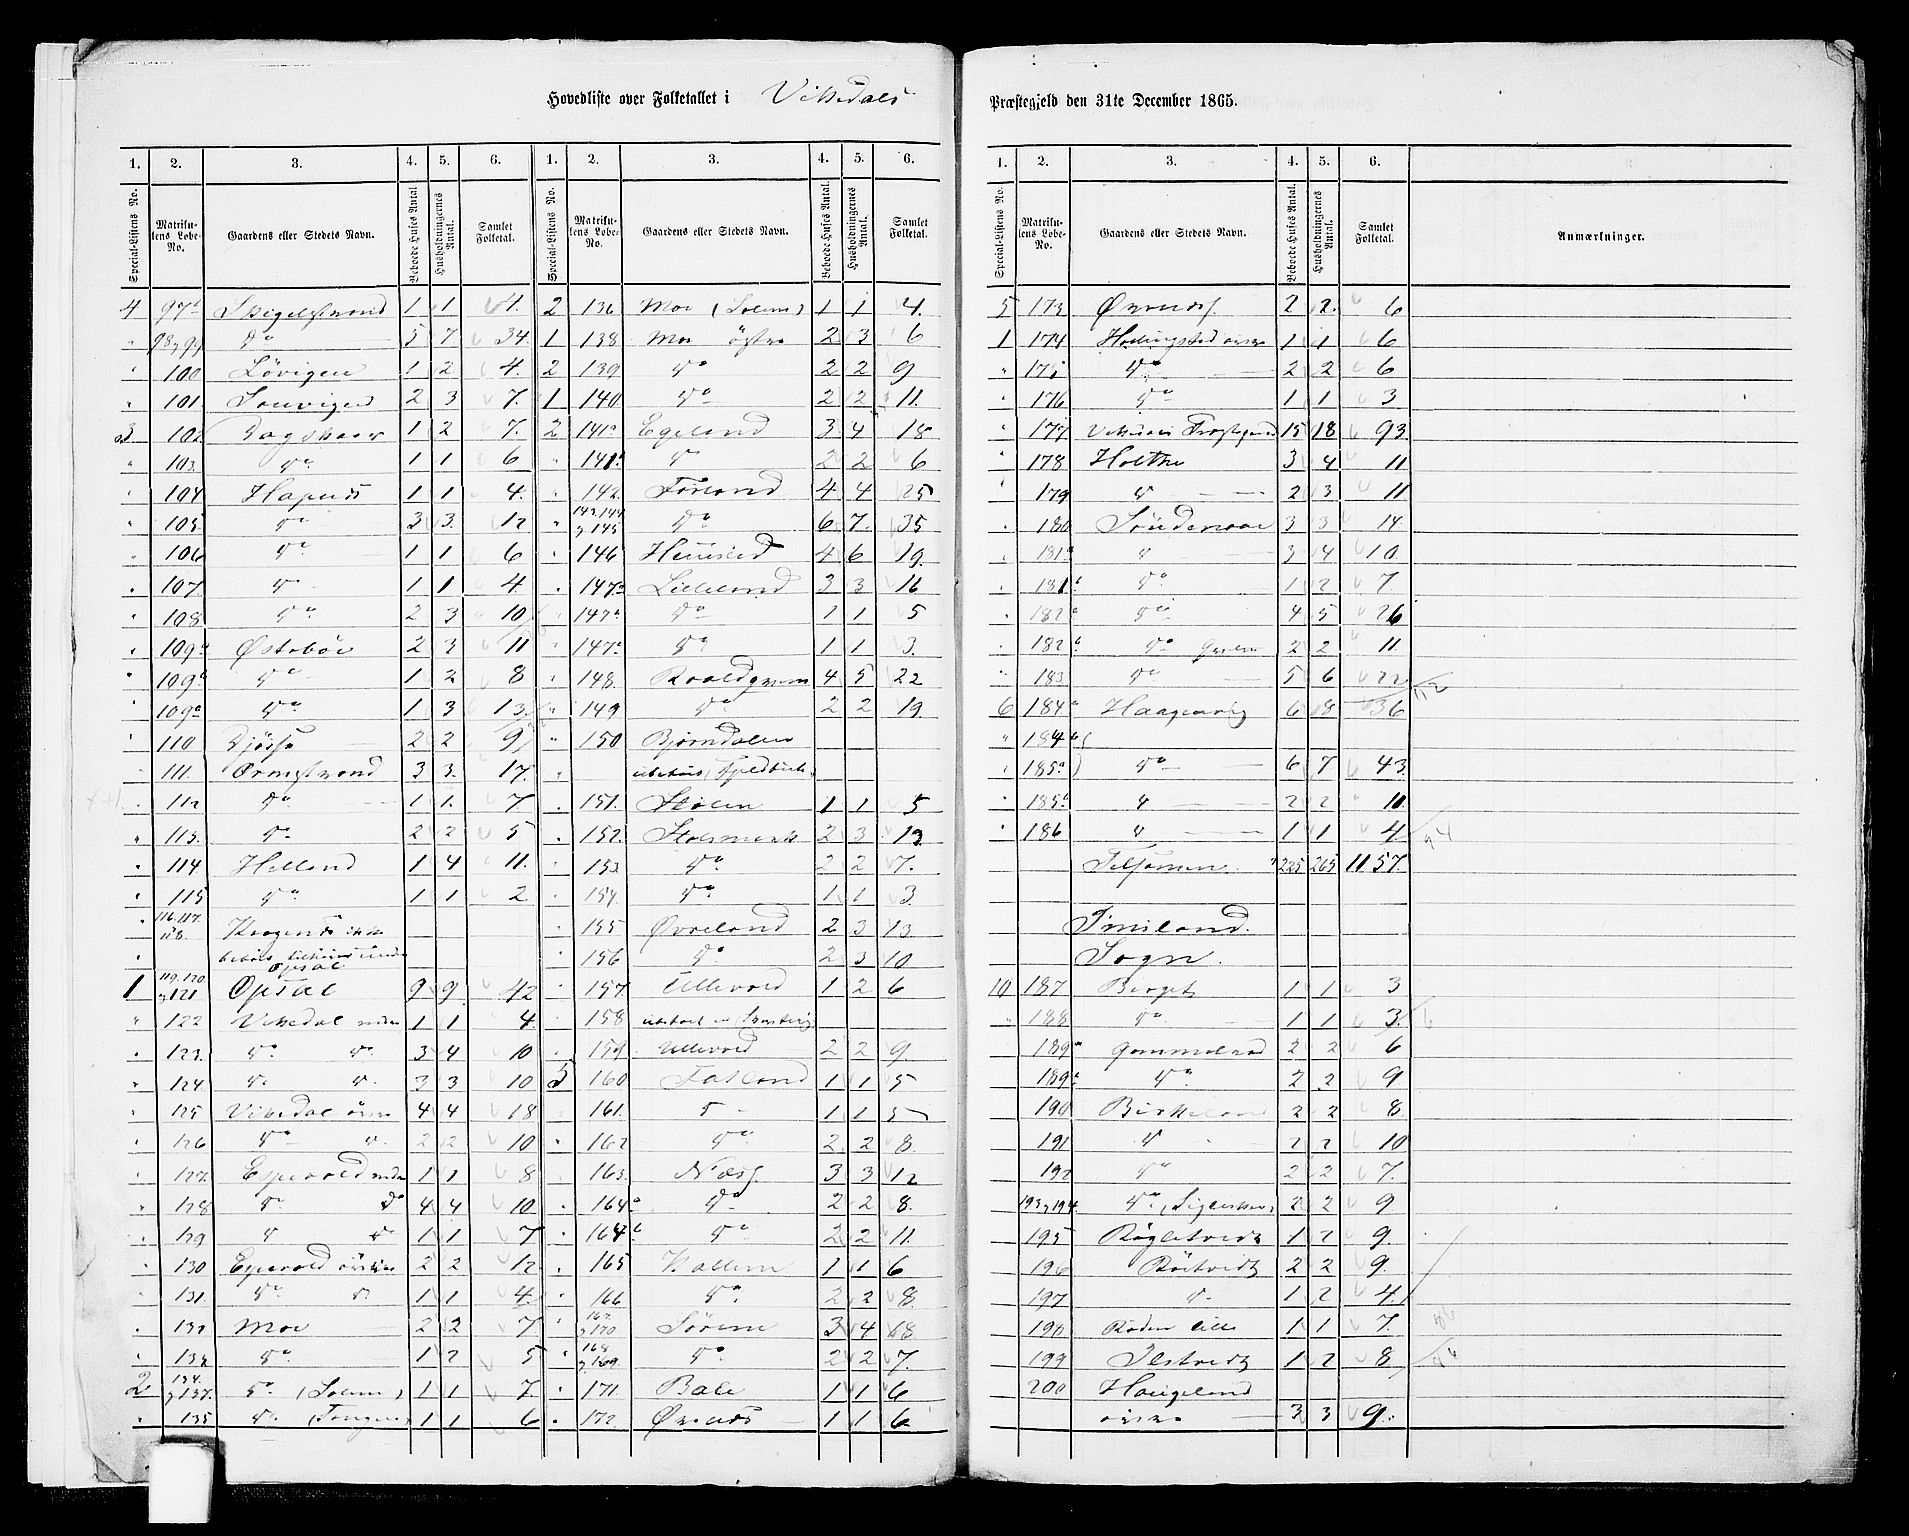 Hovedliste over Folketallet i Vikedals
Præstegjeld den 31te December 1865.
1. 2. 3. 4. 5. 6. 1. 2. 3. 4. 5. 6.
Special-Listens No. Matrikulens Løbe-No. Gaardens eller Stedets Navn. Beboede Huses Antal Husholdningernes Antal. Samlet Folketal. Special-Listens No. Matrikulens Løbe-No. Gaardens eller Stedets Navn. Beboede Huses Antal. Husholdningernes Antal. Samlet Folketal.
4 97a 1 1 4. 2 136 Moe (Solem) 1 1 4.
" 98 & 99 do 5 7. 34. 1 138 Moe østre 2 3 6
" 100 Løvigen 1 2 4. 2 139 do 2 2 9
" 101. 2 3 7. 1 140. do 2 2 11.
3 102 Dagskaar 1 2 7. 2 141a Egeland 3 4 18
" 103. do 1 1 6 " 141 do 2 2 6
104 Hapnes 1 1 4. 142. Førland 4 4 25
" 105. do 3 3. 12 " 143. 144 & 145 do 6 7. 35
106 do 1 1 6 146 4 6 19.
107. do 1 1 4. 147a Lilleland 3 3 16
108 do 2 3 10 147 do 1 1 5
109a Østebøe 2 3 11 147 do 1 1 3.
109 do 1 2 8 148. Roaldqvam 4 5 22
109 do 1 3 13. 149 do 2 2 19.
110. Djørse 2 2 9 150 Bjørndalen
111. Ormstrand 3 3. 17.
112 do 1 1. 7. 151. Stølen 1 1 5
" 113. do 2 2 5 152. Stølsmark 2 3 13
114. Helland 1 4 11. 153 do 2 2 7.
115 do 1 1 2 154. do 1 1 3.
116. 117. 118. 155 Øvreland 2 3 13
Opsal 156 do 2 3 10
1 119. 120 & 121 Opsal 9 9 42 157. Ullevold 1 2 6
" 122 Vikedal nedre 1 1 4. 158
" 123. do do 3 4 10 159 Ullevold 2 2 9
" 124. do do 3 3 10 5 160 Fatland 1 1 5
125 Vikedal øvre 4 4 18 161. do 1 1 5
126 do do 2 2 10 162 do 2 2 8.
127. Espevold nedre 1 1 8 163. Næs 3 3 12
128 do do 4 4 10 164a do 2 2 8.
129 do do 1 1 7 164b do 2 2 11.
130 Espevold øvre 2 2 12 165 Kallem 1 1 6
131. do do 1 1 4. 166 do 2 2 8.
132 Moe 2 2 7. 167. & 170 Sørem 3 4 18
133 do 1 2 5 168 & 169. do 2 2 7.
2 134. & 137. do (Solem) 1 1 7. 171. Bale 1 1 6
" 135 do 1 1 6 172. Ørenæs 1 1 6
1. 2. 3. 4. 5. 6.
Special-Listens No. Matrikulens Løbe-No. Gaardens eller Stedets Navn. Beboede Huses Antal. Husholdningernes Antal. Samlet Folketal. Anmærkninger.
5 173 Ørenæs 2 2. 6
1 174 1 1 6
" 175 do 2 2 6
176 do 1 1 3
177 Vikedals Præstegaard 15 18 93.
178 Holthe 3 4 11
179 do 2 3 11
180 Søndenaae 3 3 14.
181a do 3 4 10
181b do 1 2 7.
182a do 4 5 26
182b do 2 2 11.
183. do 5 6 22
112
6 184a Haagenvig 6 8 36
" 184b
185a do 6 7 43.
185 do 2 2 11.
186 do 1 1 4
94
Tilsammen. 225 265 1157.
Imsland.
Sogn.
10 187 Berge 1 1 3
188 do 1 1 3.
6
189a 2 2 6
189 do 2 2 9
190 Birkeland 2 2 8.
191 do 2 2 10
192 do 2 2 7.
193 & 194 do 2 2 9
195 Røgletvedt 1 2 9.
196 Røitvedt 2 2 9.
197 do 1 2 4.
198 Røden lille 1 1 7.
199 Ilstvedt 1 2 8
200 Haugeland
øvre 3 3 9.